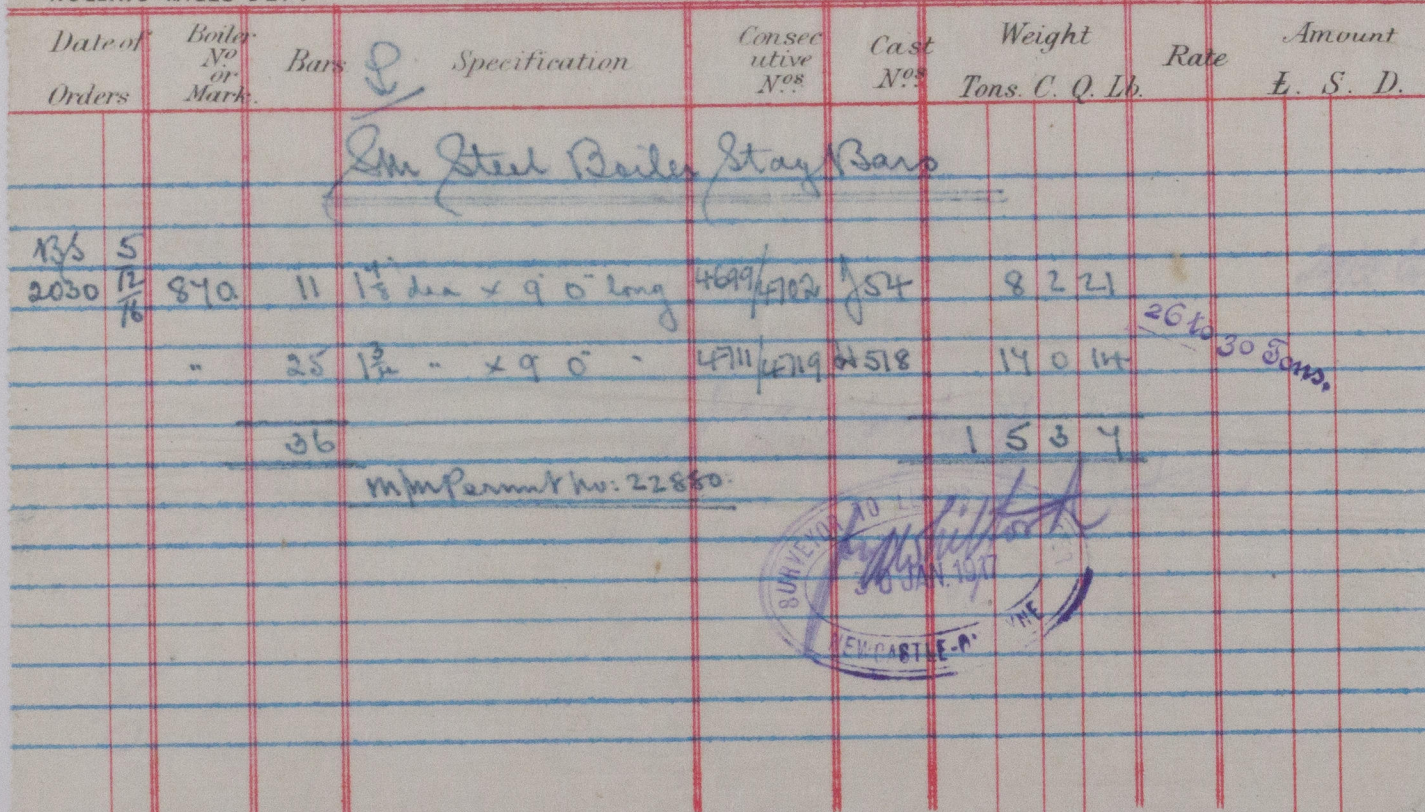 Date of Orders Boiler No or Mark. Bars Specification Consecutive Nos. Cast Nos. Weight Tons. C. Q. Lb. Rate Amount £. S. D.
Sm Steel Boiler Stay Bars
BS 5
2030 12/16 870 11 1 7/8" dia x 9' 0" long 4699/4702 54 8 2 21
26 to 30 Tons.
" 25 " x 9' 0" " 4711/4719 518 17 0 14
36 1 5 3 7
M/M Permit No: 22880.
SURVEYOR TO
JAN. 1917
NEWCASTLE-